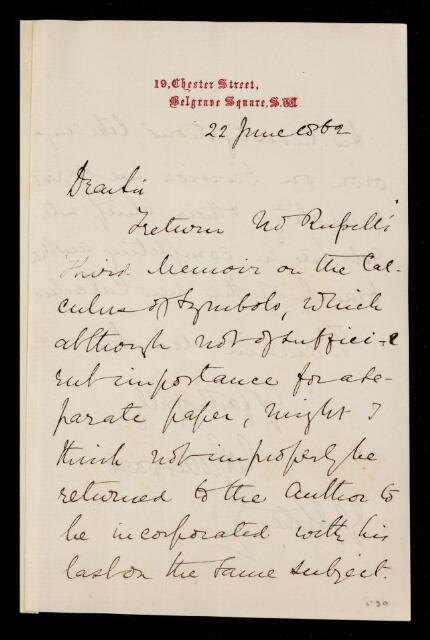 19, Chester Street,
Belgrave Square, S.W.
22 June 1862
Dear Sir
I return Mr Russell's
third Memoir on the Cal-
culus of Symbols, which
although not of suffici-
ent importance for a se-
parate paper, might I
think not improperly be
returned to the Author to
be incorporated with his
last on the same subject.